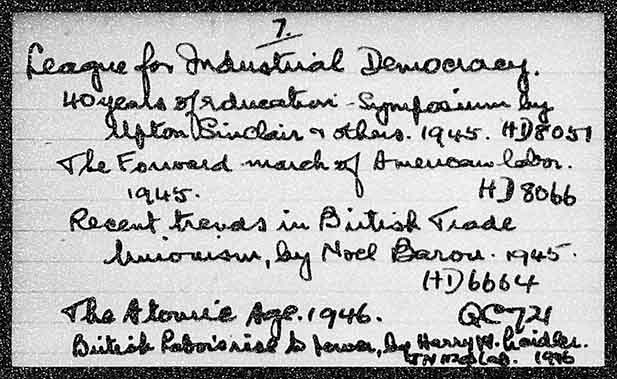 7.
League for Industrial Democracy.
40 years of education - Symposium by
Upton Sinclair & others. 1945. HD8051
The Forward march of American labor.
1945. HD8066
Recent trends in British Trade
Unionism, by Noel Barou. 1945.
HD6664
The Atomic Age. 1946. QC721
British Labor's rise to power, by Harry W. Laidler.
1946